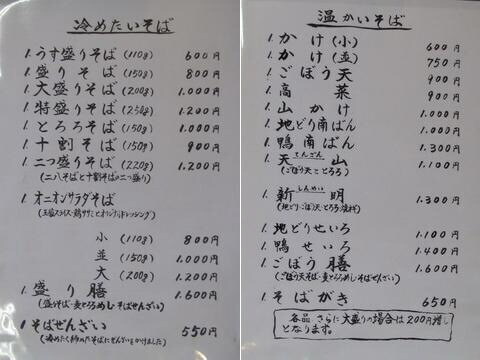 冷めたいそば
1. うす盛りそば (110g) 600円
1. 盛りそば (150g) 800円
1. 大盛りそば (200g) 1.000円
1. 特盛りそば (250g) 1.200円
1. とろろそば (150g) 1.000円
1. 十割そば (150g) 900円
1. 二つ盛りそば (220g) 1.200円
(二八そばと十割そばの二つ盛り)
1. オニオンサラダそば
(玉葱スライス・鶏ササミとオリジナルドレッシング)
小 (110g) 800円
並 (150g) 1.000円
大 (200g) 1.200円
1. 盛り膳 1.600円
(盛りそば・麦とろろめし・そばぜんざい)
1. そばぜんざい 550円
(冷めたく煉ったそばにぜんざいをかけました)
温かいそば
1. かけ(小) 600円
1. かけ(並) 750円
1. ごぼう天 900円
1. 高菜 900円
1. 山かけ 1.000円
1. 地どり南ばん 1.000円
1. 鴨南ばん 1.300円
1. 天山 1.100円
てんざん
(ごぼう天ととろろ)
1. 新明 1.300円
しんめい
(地どり・ごぼう天・とろろ・)
1. 地どりせいろ 1.100円
1. 鴨せいろ 1.400円
1. ごぼう膳 1.600円
(ごぼう天そば・麦とろろめし・そばぜんざい)
1. そばがき 650円
各品、さらに大盛りの場合は200円増し
となります。